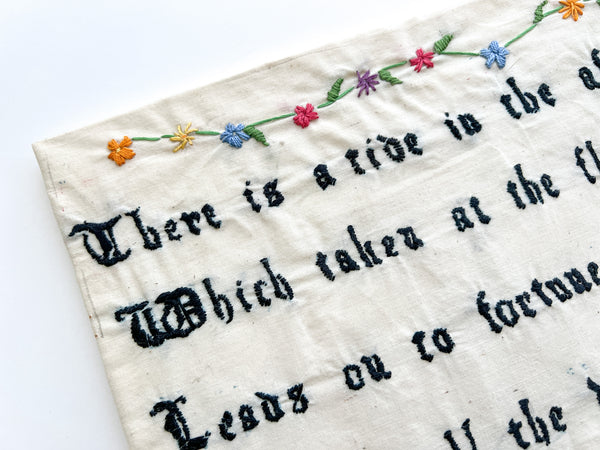 There is a tide in the
Which taken at the
Leads on to fortune
the